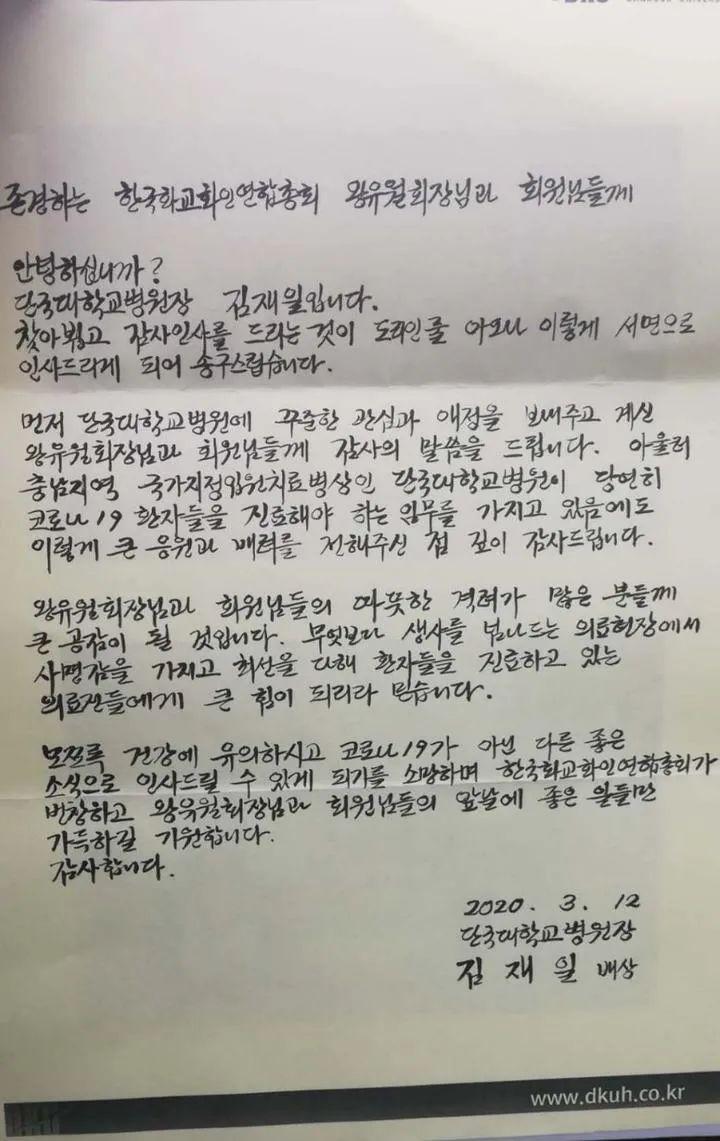 존경하는 한국화교화인연합총회 왕유월회장님과 회원님들께
안녕하십니까?
단국대학교병원장 김재일입니다.
찾아뵙고 감사인사를 드리는 것이 도리인줄 아오나 이렇게 서면으로
인사드리게 되어 송구스럽습니다.
먼저 단국대학교병원에 꾸준한 관심과 애정을 보내주고 계신
왕유월회장님과 회원님들께 감사의 말씀을 드립니다. 아울러
충남지역 국가지정입원치료병상인 단국대학교병원이 당연히
코로나19 환자들을 진료해야 하는 임무를 가지고 있음에도
이렇게 큰 응원과 배려를 전해주신 점 깊이 감사드립니다.
왕유월회장님과 회원님들의 따뜻한 격려가 많은 분들께
큰 공감이 될 것입니다. 무엇보다 생사를 넘나드는 의료현장에서
사명감을 가지고 최선을 다해 환자들을 진료하고 있는
의료진들에게 큰 힘이 되리라 믿습니다.
모쪼록 건강에 유의하시고 코로나19가 아닌 다른 좋은
소식으로 인사드릴 수 있게 되기를 소망하며 한국화교화인연합총회가
번창하고 왕유월회장님과 회원님들의 앞날에 좋은 일들만
가득하길 기원합니다.
감사합니다.
2020. 3. 12
단국대학교병원장
김재일 배상
www.dkuh.co.kr